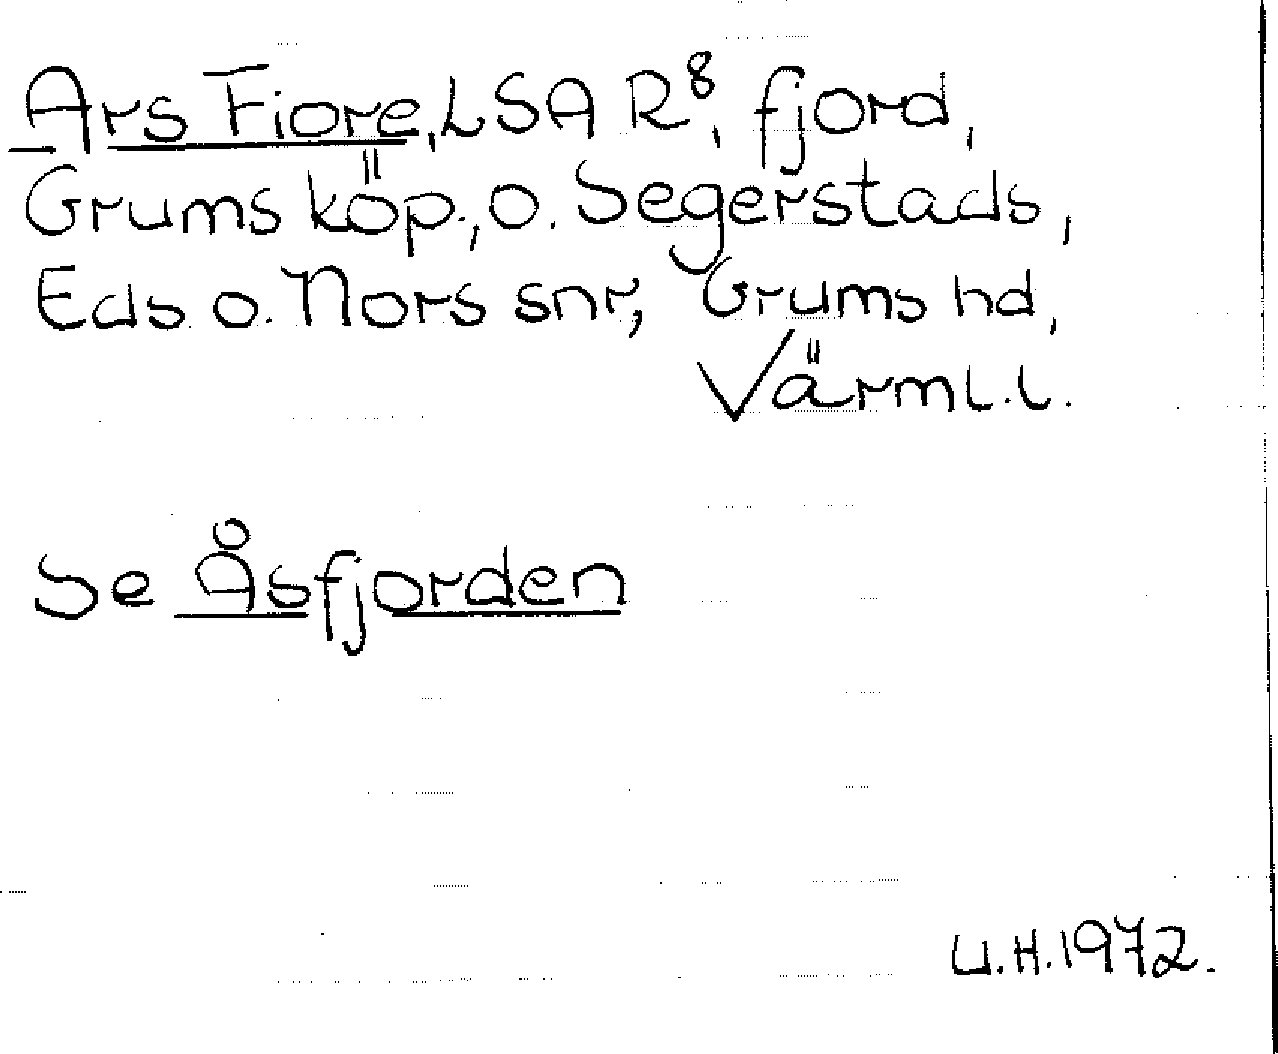 Ars Fiore, LSA R⁸, fjord,
Grums köp., o. Segerstads,
Eds o. Nors snr, Grums hd,
Värml.l.
Se Åsfjorden
U.H.1972.